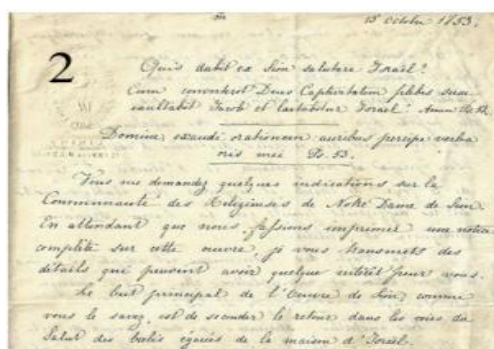 15 octobre 1853.
2
Quis dabit ex Sion salutare Israël?
Cum converterit Deus Captivitatem plebis suae
exultabit Jacob et laetabitur Israël! Amen Ps. 52.
Domine, exaudi orationem auribus percipe verba
oris mei Ps. 53.
Vous me demandez quelques indications sur la
Communauté des Religieuses de Notre Dame de Sion
En attendant que nous fassions imprimer une notice
complète sur cette œuvre, je vous transmets des
détails qui peuvent avoir quelque intérêt pour vous.
Le but principal de l'Œuvre de Sion, comme
vous le savez, est de seconder le retour dans les voies du
Salut des brebis égarées de la maison d'Israël.